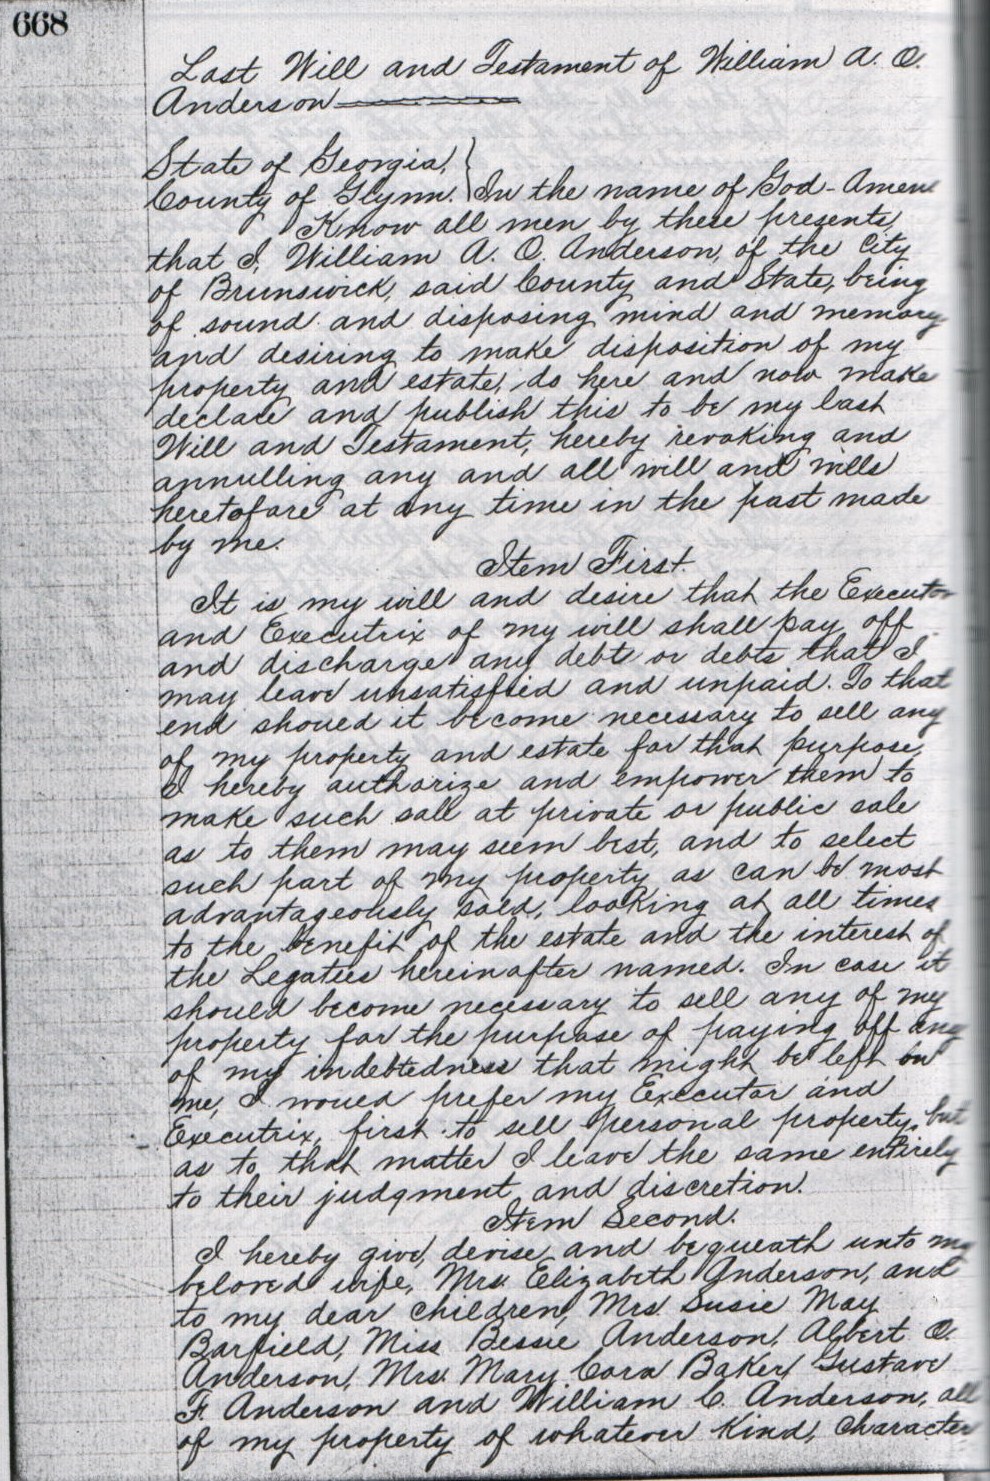 668
Last Will and Testament of William A. O.
Anderson
State of Georgia,
County of Glynn. } In the name of God - Amen
Know all men by these presents,
that I, William A. O. Anderson, of the City
of Brunswick, said County and State, being
of sound and disposing mind and memory
and desiring to make disposition of my
property and estate, do here and now make
declare and publish this to be my last
Will and Testament, hereby revoking and
annulling any and all will and wills
heretofore at any time in the past made
by me.
Item First.
It is my will and desire that the Executor
and Executrix of my will shall pay off
and discharge any debt or debts that I
may leave unsatisfied and unpaid. To that
end should it become necessary to sell any
of my property and estate for that purpose,
I hereby authorize and empower them to
make such sall at private or public sale
as to them may seem best, and to select
such part of my property as can be most
advantageously sold, looking at all times
to the benefit of the estate and the interest of
the Legatees hereinafter named. In case it
should become necessary to sell any of my
property for the purpose of paying off any
of my indebtedness that might be left on
me, I would prefer my Executor and
Executrix, first to sell personal property, but
as to that matter I leave the same entirely
to their judgment and discretion.
Item Second.
I hereby give, devise and bequeath unto my
beloved wife, Mrs. Elizabeth Anderson, and
to my dear children, Mrs. Susie May
Barfield, Miss Bessie Anderson, Albert O.
Anderson, Mrs. Mary Cora Baker, Gustave
F. Anderson and William C. Anderson, all
of my property of whatever kind, character